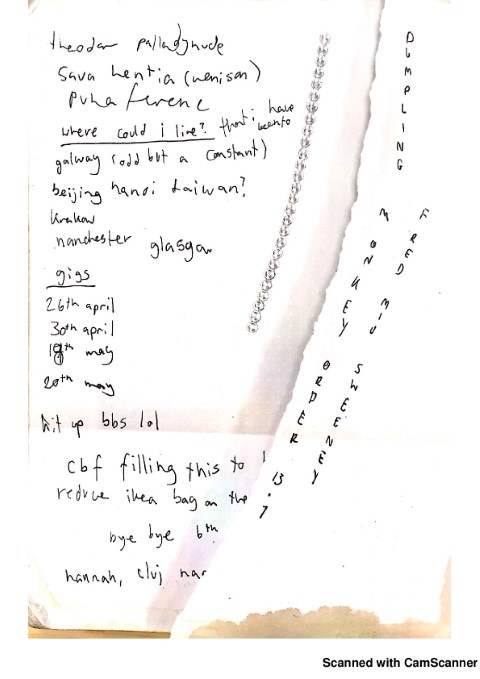 theodor pallady nude
Sava hentia (venison)
Puha ferenc
where could i live? that i have been to
galway (odd but a constant)
beijing hanoi taiwan?
krakow
manchester glasgow
gigs
26th april
30th april
19th may
20th may
hit up bbs lol
cbf filling this to
reduce ikea bag on the
bye bye 6th
hannah, cluj
DUMPLING
FRED
MONKEY
MIU
ORDER
SWEENEY
13.7
Scanned with CamScanner